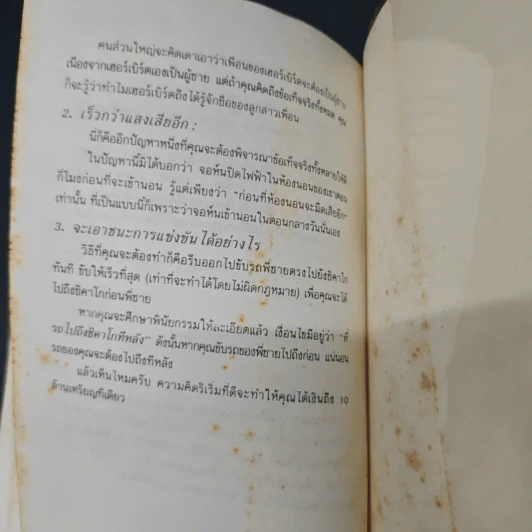 คนส่วนใหญ่จะคิดเดาเอาว่าเพื่อนของเฮอร์เบิร์ตจะต้องเป็นผู้ชาย
เนื่องจากเฮอร์เบิร์ตเองเป็นผู้ชาย แต่ถ้าคุณคิดถึงข้อเท็จจริงทั้งหมด คุณ
ก็จะรู้ว่าทำไมเฮอร์เบิร์ตถึงได้รู้จักชื่อของลูกสาวเพื่อน
2. เร็วกว่าแสงเสียอีก :
นี่ก็คืออีกปัญหาหนึ่งที่คุณจะต้องพิจารณาข้อเท็จจริงทั้งหลายให้ดี
ในปัญหานี้มิได้บอกว่า จอห์นปิดไฟฟ้าในห้องนอนของเขาตอน
กี่โมงก่อนที่จะเข้านอน รู้แต่เพียงว่า "ก่อนที่ห้องนอนจะมืดเสียอีก"
เท่านั้น ที่เป็นแบบนี้ก็เพราะว่าจอห์นเข้านอนในตอนกลางวันนั่นเอง
3. จะเอาชนะการแข่งขันได้อย่างไร
วิธีที่คุณจะต้องทำก็คือรีบออกไปขับรถพี่ชายตรงไปยังชิคาโก
ทันที ขับให้เร็วที่สุด (เท่าที่จะทำได้โดยไม่ผิดกฎหมาย) เพื่อคุณจะได้
ไปถึงชิคาโกก่อนพี่ชาย
หากคุณจะศึกษาพินัยกรรมให้ละเอียดแล้ว เงื่อนไขมีอยู่ว่า
รถไปถึงชิคาโกทีหลัง" ดังนั้นหากคุณขับรถของพี่ชายไปถึงก่อน แน่นอน
รถของคุณจะต้องไปถึงทีหลัง
แล้วเห็นไหมครับ ความคิดริเริ่มที่ดีจะทำให้คุณได้เงินถึง 10
ล้านเหรียญทีเดียว